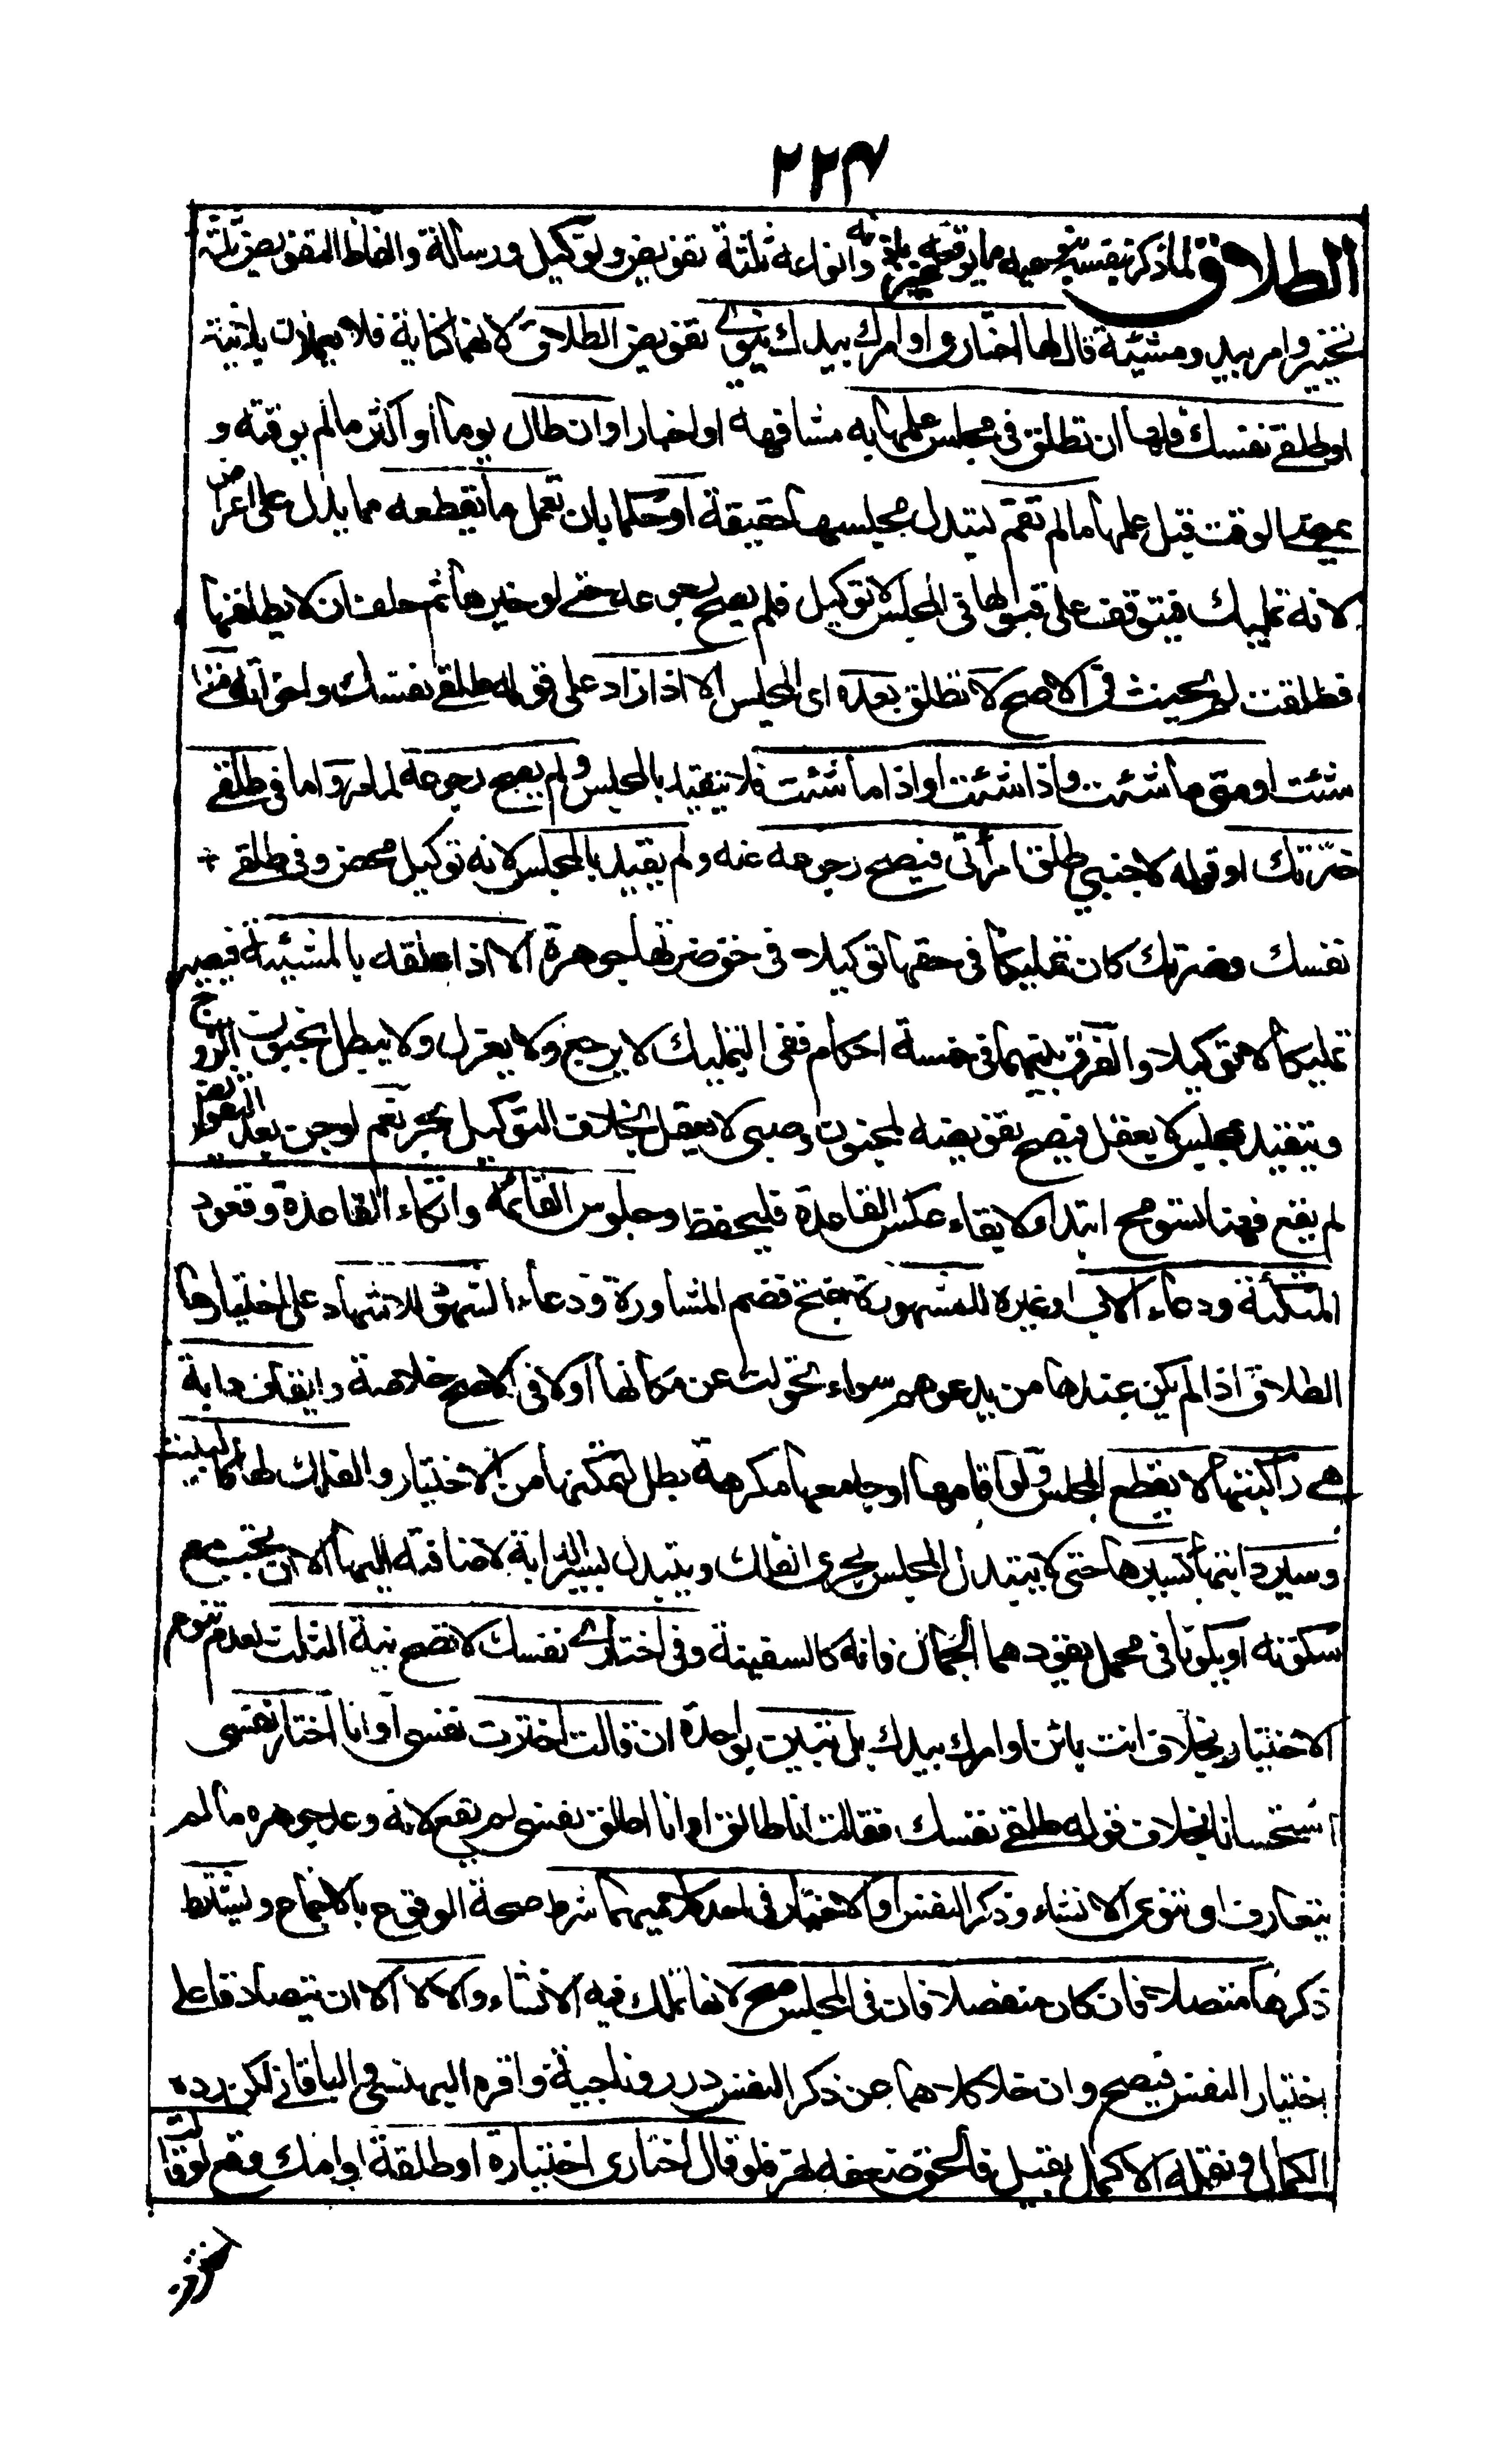 ٢٢٣
الطلاق لما ذكر نفسه بنوعيه ما يوقعه غيره باذنه وانواعه ثلثة تفويض وتوكيل ورسالة والفاظ التفويض ثلثة
تخيير وامر بيد ومشيئة قال لها اختاري او امرك بيدك ينوي تفويض الطلاق لانهما كناية فلا يعملان بلا نية
او طلقي نفسك فلها ان تطلق في مجلس علمها به مشافهة او اخبارا وان طال يوما او اكثر ما لم يوقته و
يمضي الوقت قبل علمها ما لم تقم لتبدل مجلسها حقيقة او حكما بان تعمل ما يقطعه مما يدل على اعراض
لانه تمليك فيتوقف على قبولها في المجلس لا توكيل فلم يصح رجوعه حتى لو خيرها ثم حلف ان لا يطلقها
فطلقت لم يحنث في الاصح لا تطلق بعده اى المجلس الا اذا زاد على قوله طلقي نفسك واخواته متى
شئت او متى ما شئت او اذا شئت او اذا ما شئت فلا يتقيد بالمجلس ولم يصح رجوعه لما مر واما في طلقي
ضرتك او قوله لاجنبي طلق امرأتى فيصح رجوعه عنه ولم يقيد بالمجلس لانه توكيل محض وفي طلقي
نفسك وضرتك كان تمليكا في حقها توكيلا في حق ضرتها جوهرة الا اذا علقه بالمشيئة فيصير
تمليكا لا توكيلا والفرق بينهما في خمسة احكام ففي التمليك لا يرجع ولا يعزل ولا يبطل بجنون الزوج
ويتقيد بمجلس لا بعقل فيصح تفويضه لمجنون وصبى لا يعقل بخلاف التوكيل بحر نعم لو جن بعد التفويض
لم يقع فهنا تسومح ابتداء لا بقاء عكس القاعدة فليحفظ وجلوس القائمة واتكاء القاعدة وقعود
المتكئة ودعاء الاب او غيره للمشورة بفتح فضم المشاورة ودعاء الشهود للاشهاد على اختيارها
الطلاق اذا لم يكن عندها من يدعوهم سواء تحولت عن مكانها او لا في الاصح خلاصة وايقاف دابة
هي راكبتها لا يقطع المجلس ولو اقامها او جامعها مكرهة بطل لتمكنها من الاختيار والفلك لها كالبيت
وسير دابتها كسيرها حتى لا يتبدل المجلس بجرى الفلك ويتبدل بسير الدابة لاضافته اليها الا ان تجيب مع
سكوته او يكونا في محمل يقودهما الجمال فانه كالسفينة وفي اختاري نفسك لا تصح نية الثلث لعدم تنوع
الاختيار بخلاف انت بائن او امرك بيدك بل تبين بواحدة ان قالت اخترت نفسى او انا اختار نفسى
استحسانا بخلاف قوله طلقي نفسك فقالت انا طالق او انا اطلق نفسى لم يقع لانه وعد جوهرة ما لم
يتعارف او تنوى الانشاء وذكر النفس او الاختيار في احد كلاميهما شرط صحة الوقوع بالاجماع ويشترط
ذكرها متصلا فان كان منفصلا فان في المجلس صح لانها تملك فيه الانشاء والا لا الا ان يتصادقا على
اختيار النفس فيصح وان خلا كلاهما عن ذكر النفس درر وتاجية واقره البهنسي والباقاني لكن رده
الكمال ونقله الاكمل بقيل فالحق ضعفه نهر فلو قال اختارى اختيارة او طلقة او امك وقع لو قالت